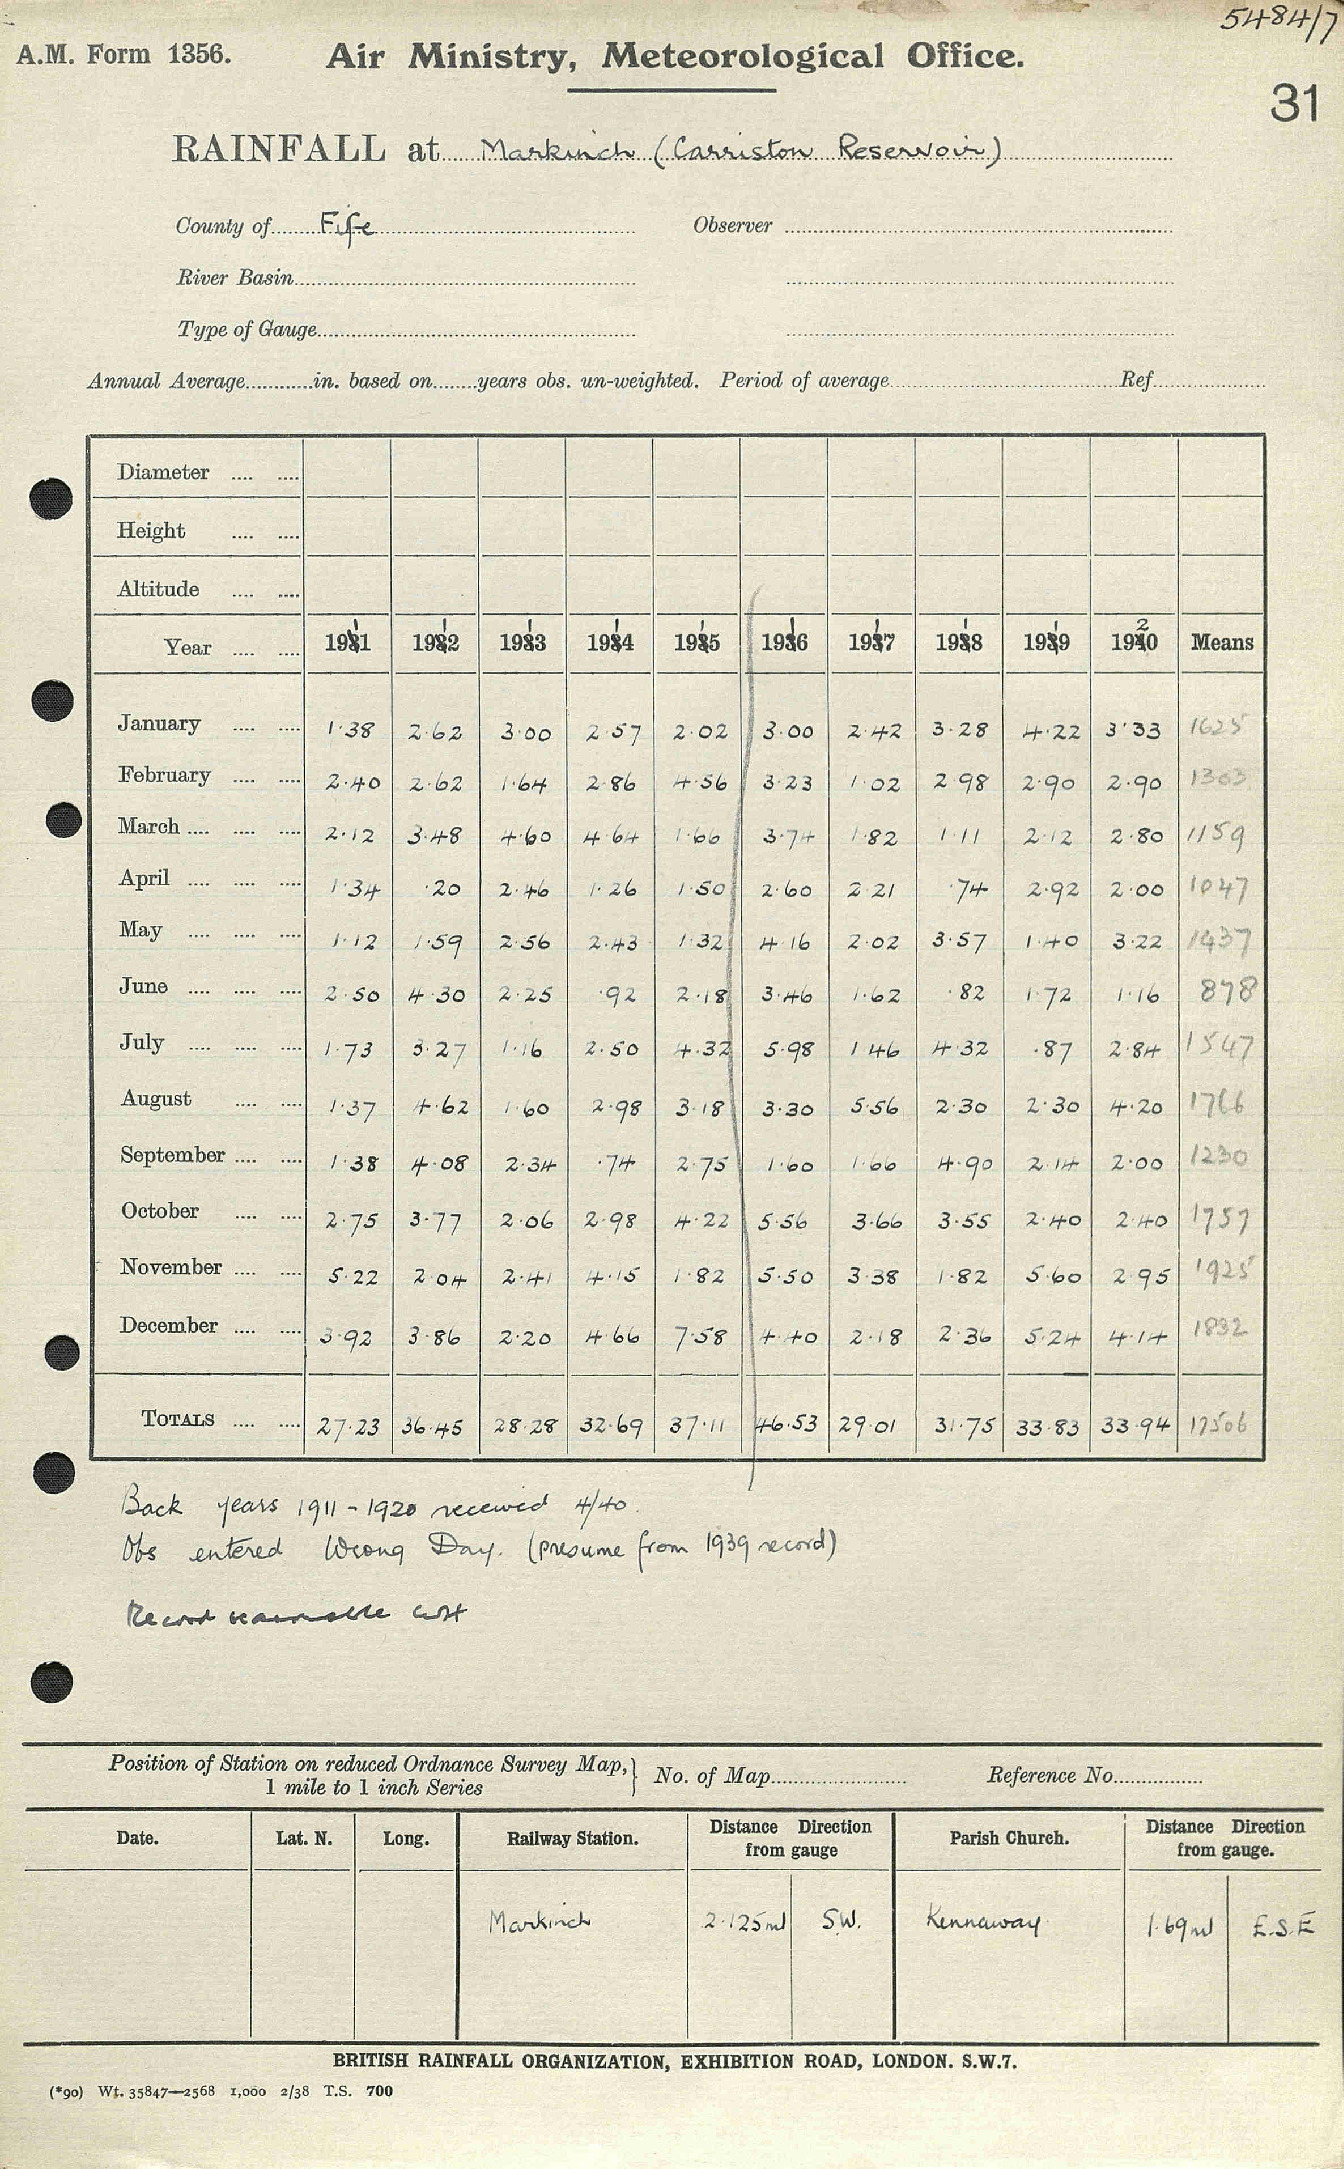 5484/7
A.M. Form 1356. Air Ministry, Meteorological Office.
31
RAINFALL at Markinch (Carriston Reservoir)
County of Fife Observer
River Basin
Type of Gauge
Annual Average in. based on years obs. un-weighted. Period of average Ref
Diameter
Height
Altitude
Year 1911 1912 1913 1914 1915 1916 1917 1918 1919 1920 Means
January 1·38 2·62 3·00 2·57 2·02 3·00 2·42 3·28 4·22 3·33 1625
February 2·40 2·62 1·64 2·86 4·56 3·23 1·02 2·98 2·90 2·90 1303
March 2·12 3·48 4·60 4·64 1·66 3·74 1·82 1·11 2·12 2·80 1159
April 1·34 ·20 2·46 1·26 1·50 2·60 2·21 ·74 2·92 2·00 1047
May 1·12 1·59 2·56 2·43 1·32 4·16 2·02 3·57 1·40 3·22 1437
June 2·50 4·30 2·25 ·92 2·18 3·46 1·62 ·82 1·72 1·16 878
July 1·73 3·27 1·16 2·50 4·32 5·98 1·46 4·32 ·87 2·84 1547
August 1·37 4·62 1·60 2·98 3·18 3·30 5·56 2·30 2·30 4·20 1766
September 1·38 4·08 2·34 ·74 2·75 1·60 1·66 4·90 2·14 2·00 1230
October 2·75 3·77 2·06 2·98 4·22 5·56 3·66 3·55 2·40 2·40 1757
November 5·22 2·04 2·41 4·15 1·82 5·50 3·38 1·82 5·60 2·95 1925
December 3·92 3·86 2·20 4·66 7·58 4·40 2·18 2·36 5·24 4·14 1832
TOTALS 27·23 36·45 28·28 32·69 37·11 46·53 29·01 31·75 33·83 33·94 17506
Back years 1911 - 1920 received 4/40.
Obs entered Wrong Day. (presume from 1939 record)
Record
Position of Station on reduced Ordnance Survey Map, No. of Map Reference No.
1 mile to 1 inch Series
Date. Lat. N. Long. Railway Station. Distance Direction from gauge Parish Church. Distance Direction from gauge.
Markinch 2·125 ml S.W. Kennaway 1·69 ml E.S.E
BRITISH RAINFALL ORGANIZATION, EXHIBITION ROAD, LONDON. S.W.7.
(*90) Wt. 35847—2568 1,000 2/38 T.S. 700